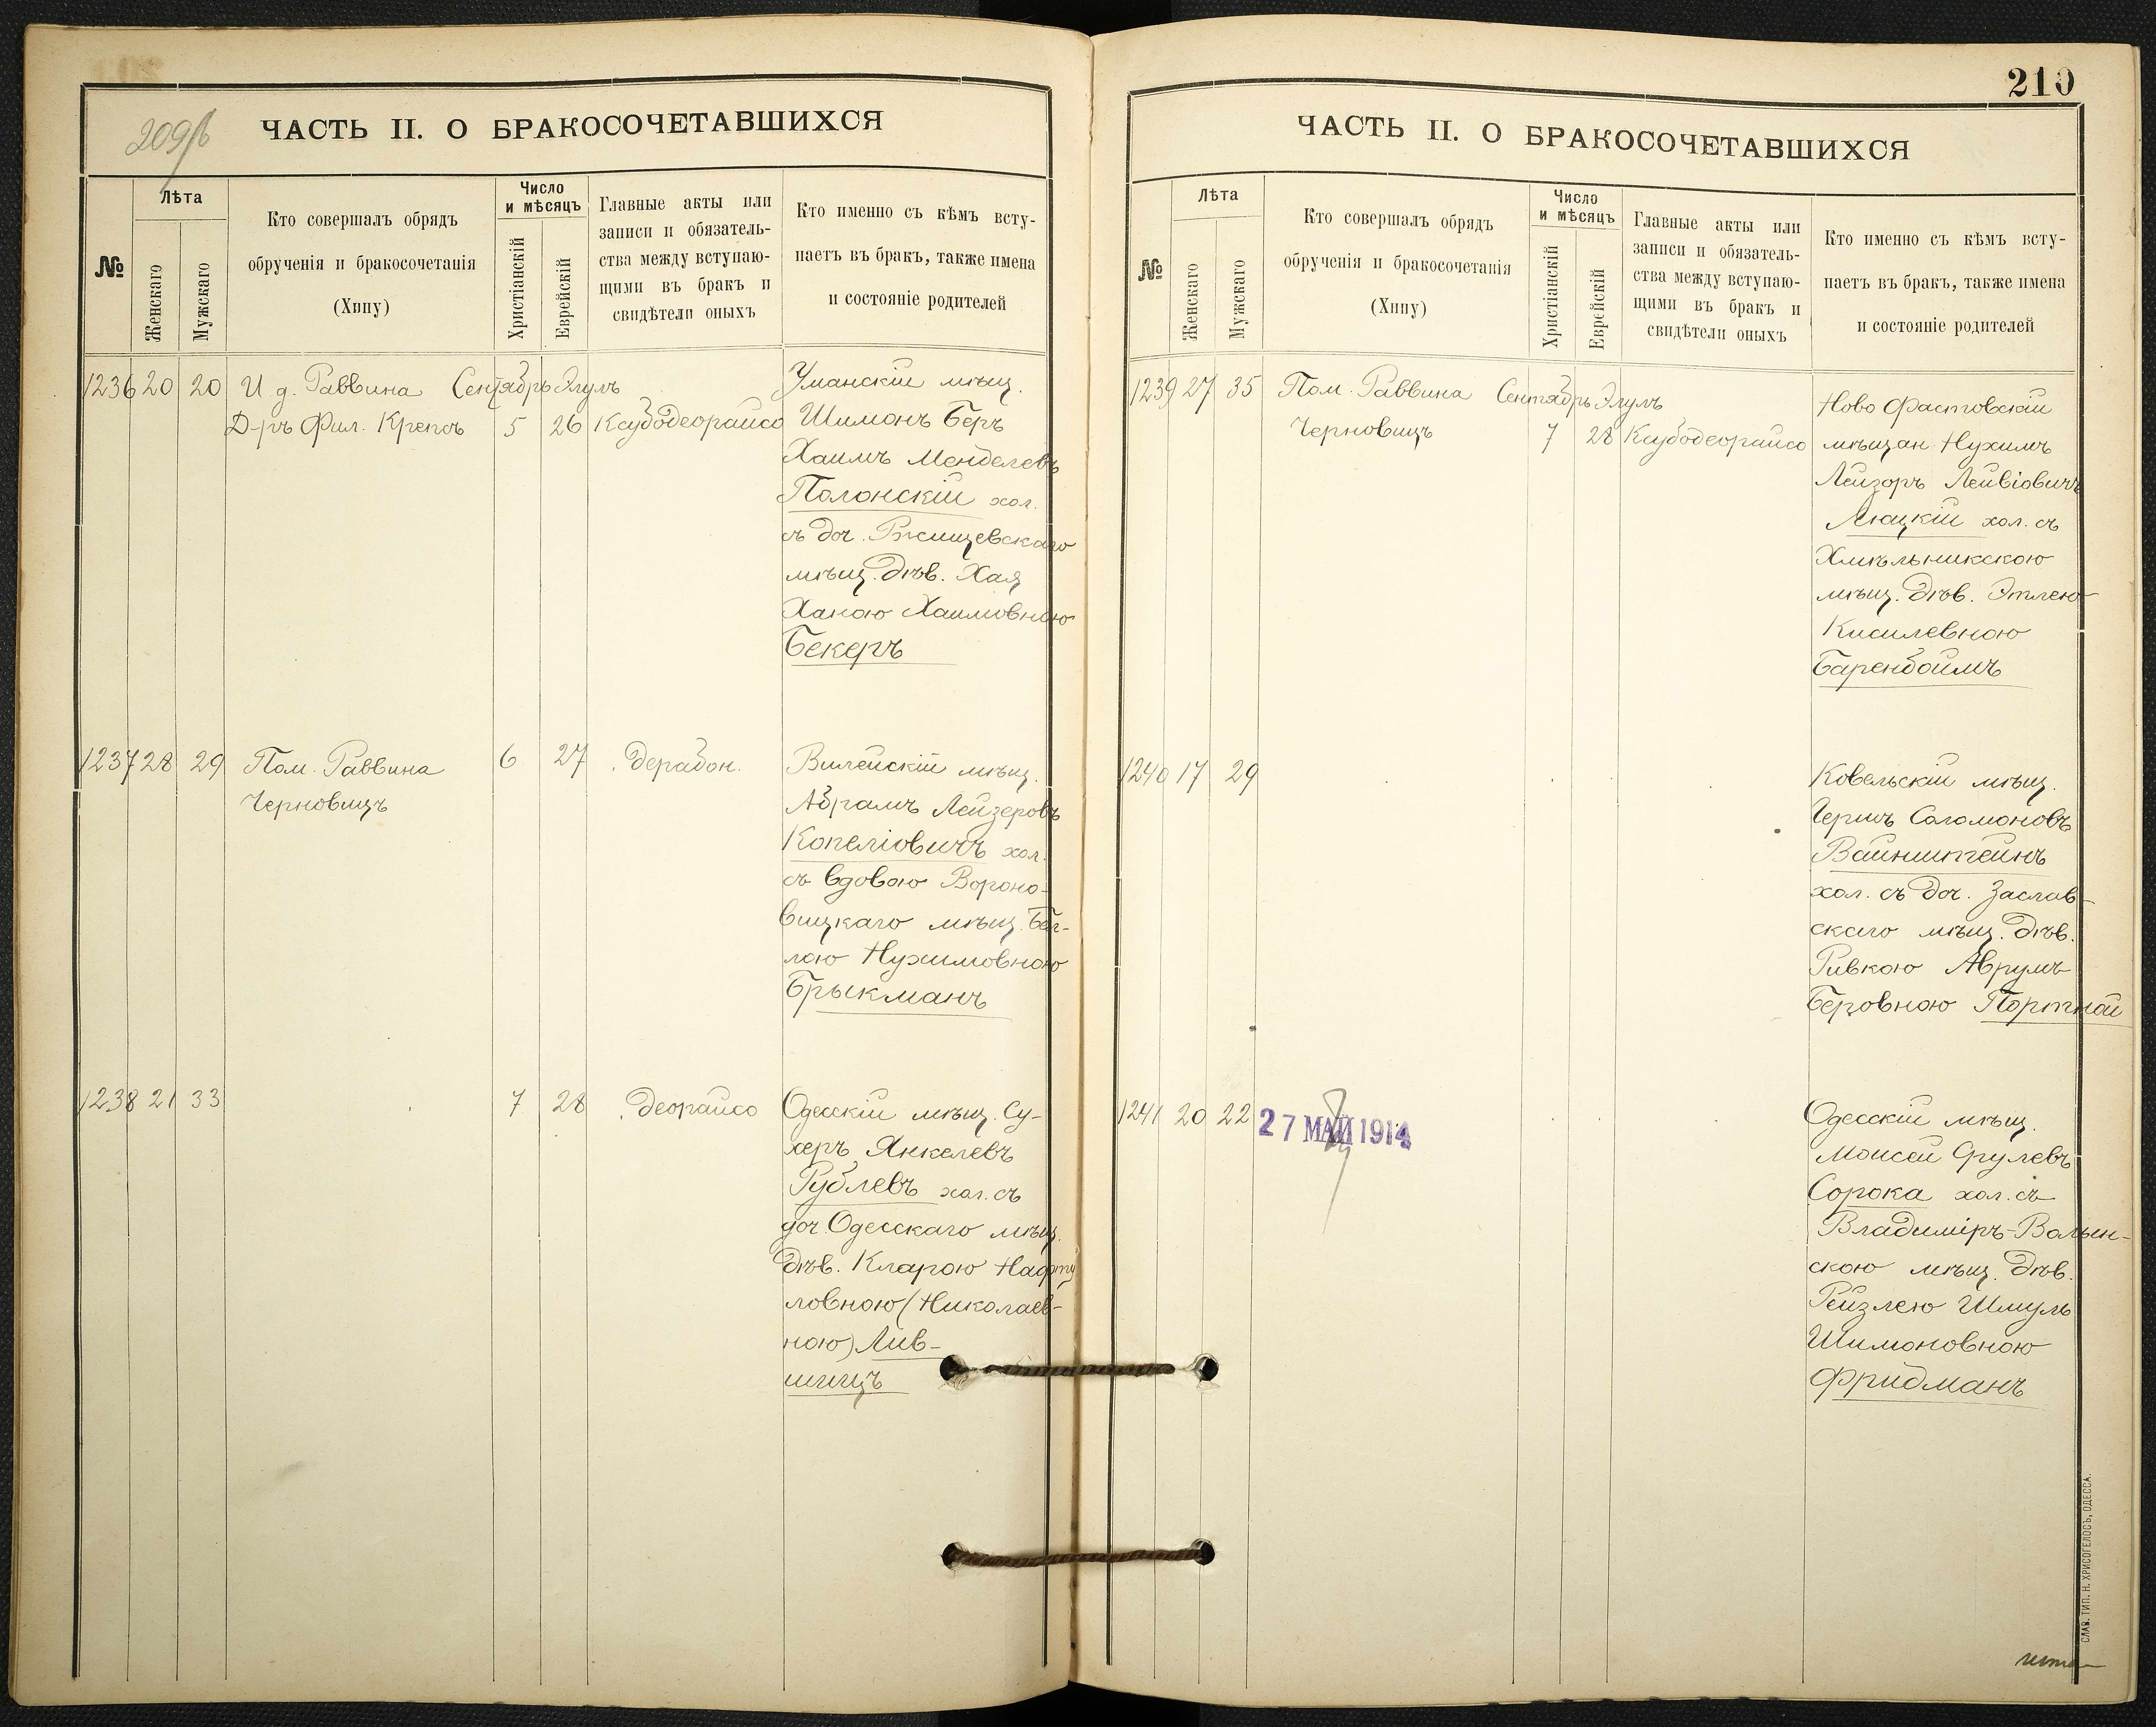 209 б
ЧАСТЬ II. О БРАКОСОЧЕТАВШИХСЯ
№
Лѣта
Женскаго
Мужскаго
Кто совершалъ обрядъ
обрученія и бракосочетанія
(Хипу)
Число
и мѣсяцъ
Христіанскій
Еврейскій
Главные акты или
записи и обязатель-
ства между вступаю-
щими въ бракъ и
свидѣтели оныхъ
Кто именно съ кѣмъ всту-
паетъ въ бракъ, также имена
и состояніе родителей
1236 20 20 И. д. Раввина Сентябрь Элулъ
Д-ръ Фил. Крепсъ 5 26 Ксубодеорайсо
Уманскій мѣщ.
Шимонъ Беръ
Хаимъ Менделевъ
Полонскій хол.
съ доч. Ржищевскаго
мѣщ. дѣв. Хая
Ханою Хаимовною
Бекеръ
1237 28 29 Пом. Раввина 6 27 . дерабон.
Черновицъ
Вилейскій мѣщ.
Абрамъ Лейзеровъ
Копеліовичъ хол.
съ вдовою Вороно-
вицкаго мѣщ. Бей-
лою Нухимовною
Брыкманъ
1238 21 33 . 7 28 . деорайсо
Одесскій мѣщ. Су-
херъ Янкелевъ
Рублевъ хол. съ
доч. Одесскаго мѣщ.
дѣв. Кларою Нафту
ловною (Николаев-
ною) Лив-
шицъ
210
ЧАСТЬ II. О БРАКОСОЧЕТАВШИХСЯ
№
Лѣта
Женскаго
Мужскаго
Кто совершалъ обрядъ
обрученія и бракосочетанія
(Хипу)
Число
и мѣсяцъ
Христіанскій
Еврейскій
Главные акты или
записи и обязатель-
ства между вступаю-
щими въ бракъ и
свидѣтели оныхъ
Кто именно съ кѣмъ всту-
паетъ въ бракъ, также имена
и состояніе родителей
1239 27 35 Пом. Раввина Сентябрь Элулъ
Черновицъ 7 28 Ксубодеорайсо
Ново Фастовскій
мѣщан. Нухимъ
Лейзоръ Лейвіовичъ
Люцкій хол. съ
Хмѣльникскою
мѣщ. дѣв. Этлею
Кисилевною
Баренбоймъ
1240 17 29 . . .
Ковельскій мѣщ.
Гершъ Соломоновъ
Вайнштейнъ
хол. съ доч. Заслав-
скаго мѣщ. дѣв.
Ривкою Аврумъ
Беровною Портной
1241 20 22 27 МАЙ 1914
Одесскій мѣщ.
Моисей Срулевъ
Сорока хол. съ
Владиміръ-Волын-
скою мѣщ. дѣв.
Рейзлею Шмуль
Шимоновною
Фридманъ
СЛАВ. ТИП. Н. ХРИСОГЕЛОСЪ, ОДЕССА.